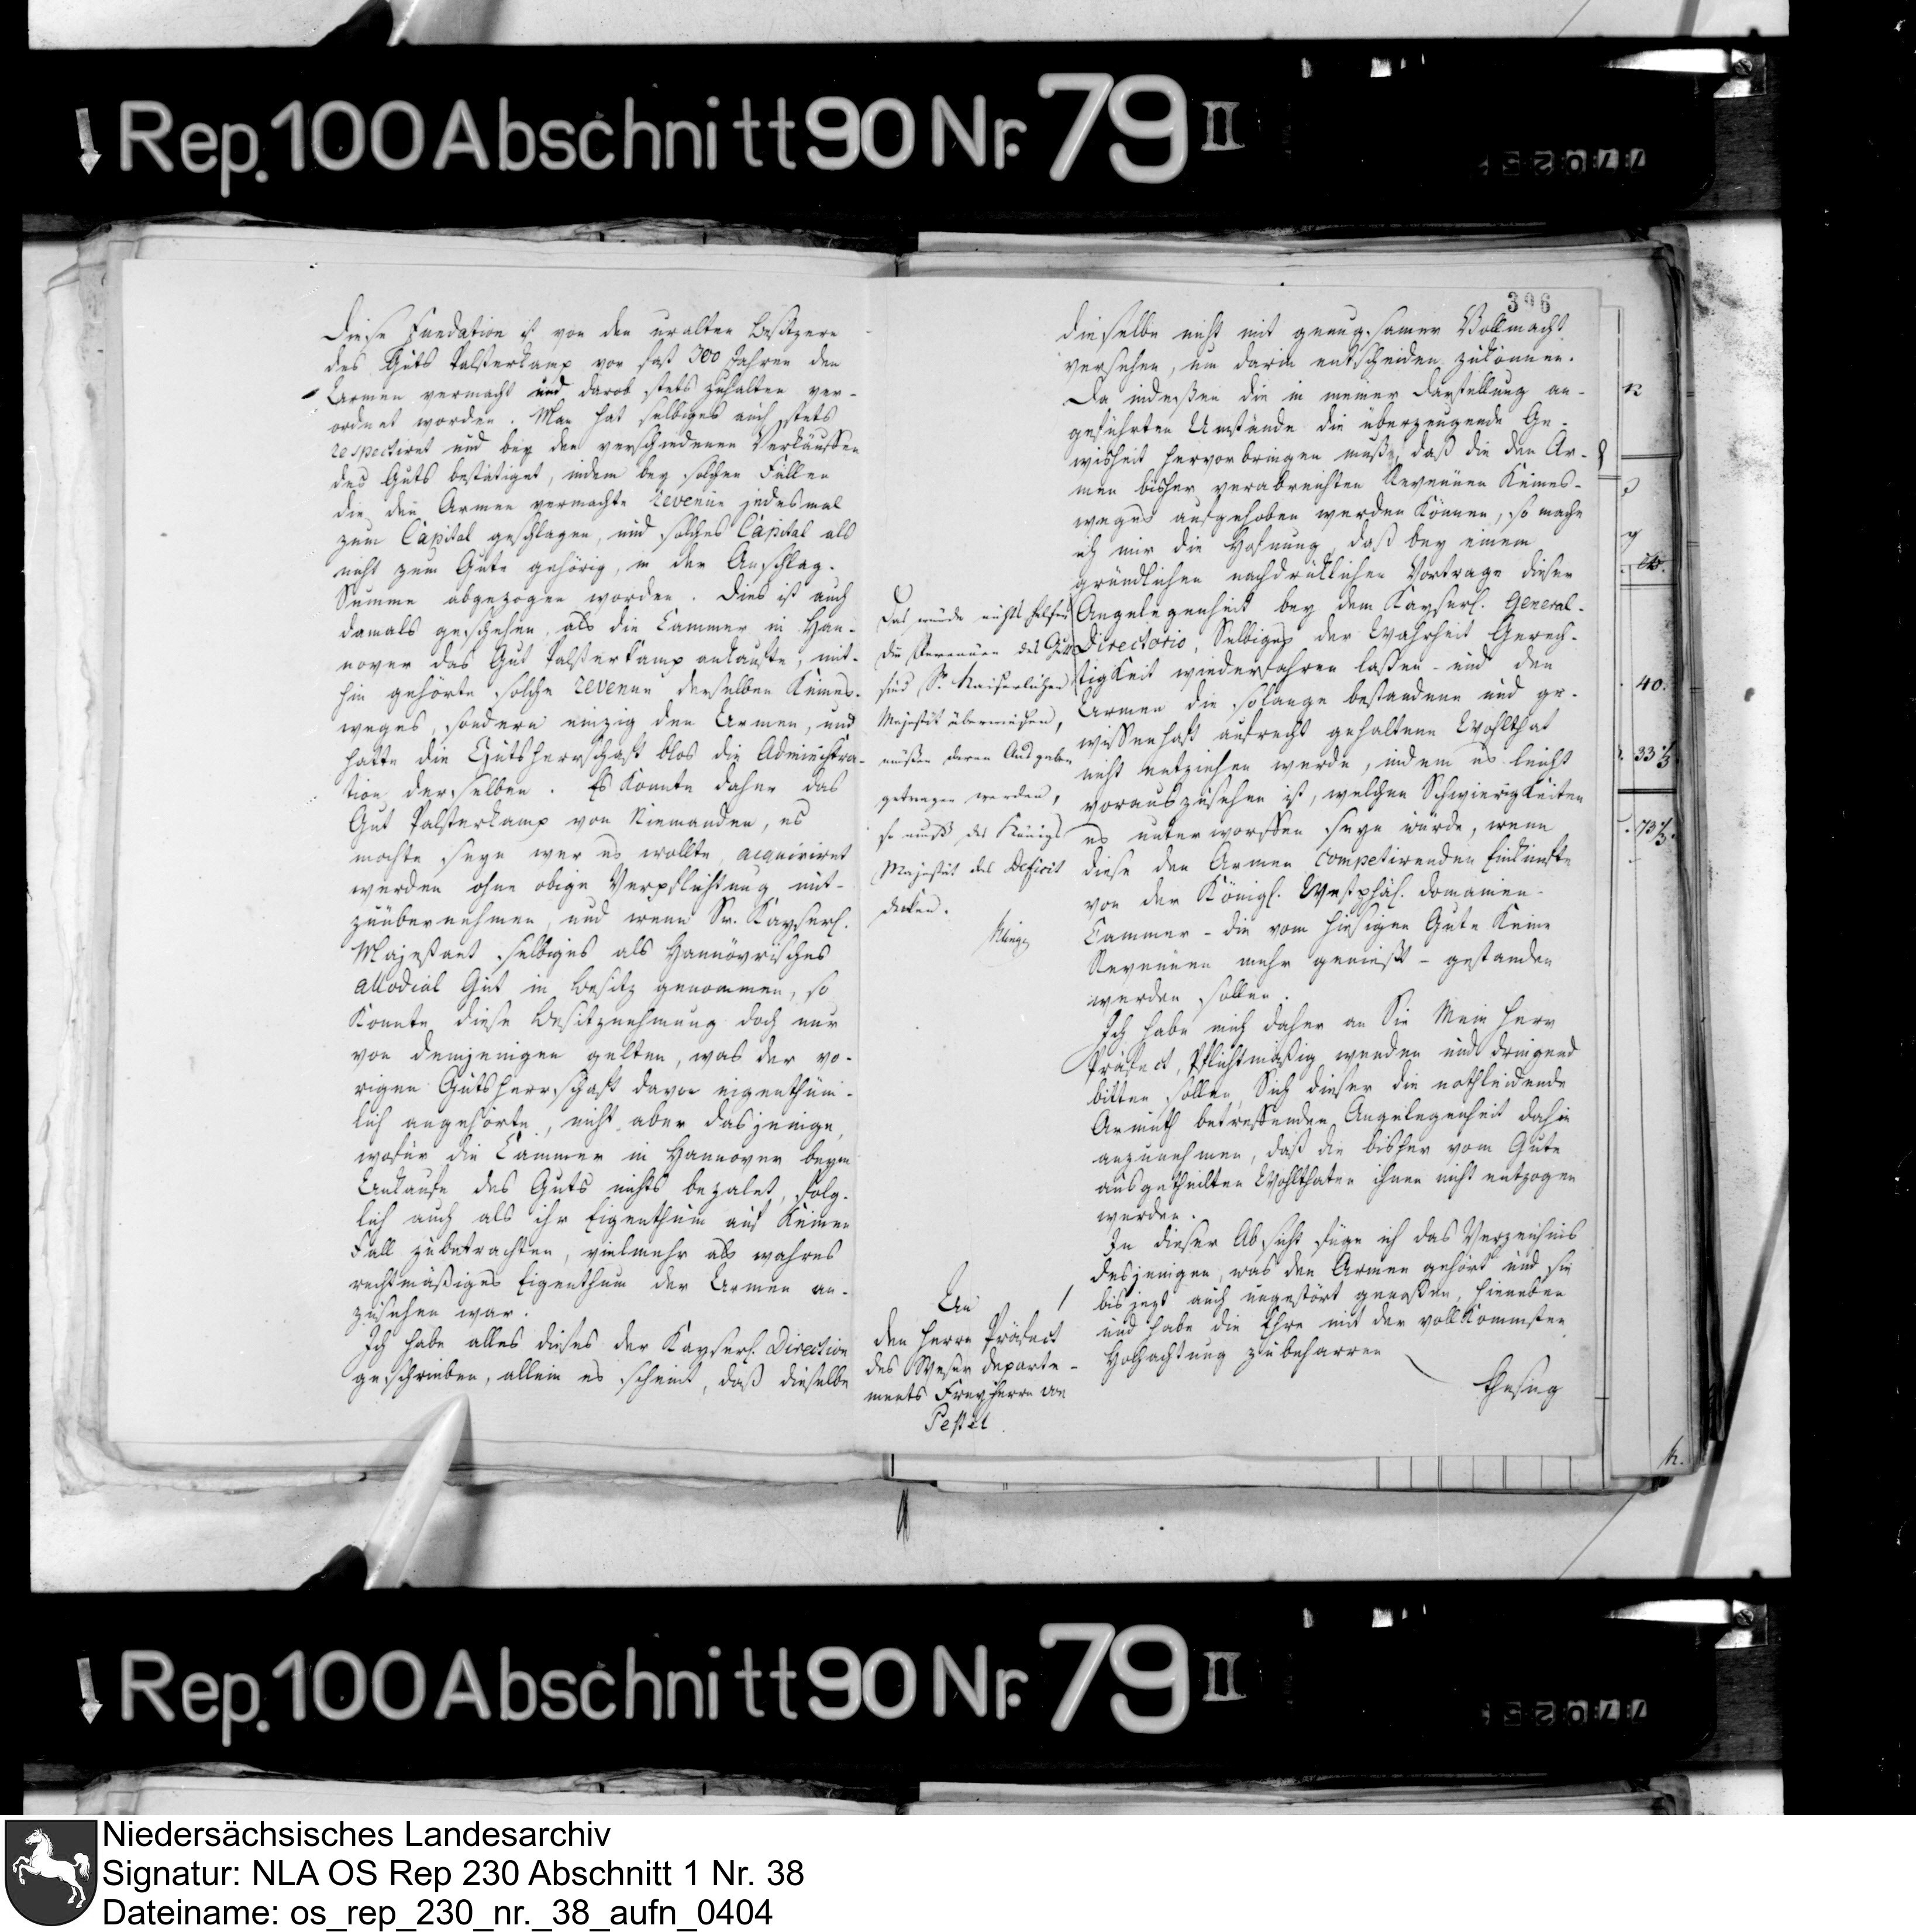 Rep. 100 Abschnitt 90 Nr. 79 II
Diese Fundation ist von den uralten Besitzern
des Guts Palsterkamp vor fast 300 Jahren den
Armen vermacht und darob stets zuhalten ver-
ordnet worden. Man hat selbiges auch stets
respectiret und bey den verschiedenen Verkäuffen
des Guts bestätiget, indem bey solchen Fällen
die den Armen vermachte revenüe jedesmal
zum Capital geschlagen, und solches Capital als
nicht zum Gute gehörig, in der Anschlag-
Summe abgezogen worden. Dies ist auch
damals geschehen, als die Cammer in Han-
nover das Gut Palsterkamp ankaufte, mit-
hin gehörte solche revenue derselben Keines-
weges, sondern einzig den Armen, und
hatte die Gutsherrschaft blos die Administra-
tion derselben. Es Konnte daher das
Gut Palsterkamp von Niemanden, es
mochte seyn wer es wollte, acquiriret
werden ohne obige Verpflichtung mit-
zuübernehmen, und wenn Sr. Kayserl.
Majestaet selbiges als Hannövrisches
allodial Gut in Besitz genommen, so
Konnte diese Besitznehmung doch nur
von demjenigen gelten, was der vo-
rigen Gutsherrschaft davon eigenthüm-
lich angehörte, nicht aber dasjenige,
wofür die Cammer in Hannover beym
Ankaufe des Guts nichts bezalet, folg-
lich auch als ihr Eigenthum auf Keinen
Fall zubetrachten, vielmehr als wahres
rechtmäßiges Eigenthum der Armen an-
zusehen war.
Ich habe alles dieses der Kayserl. Direction
geschrieben, allein es scheint, daß dieselbe
396
dieselbe nicht mit genugsamer Vollmacht
versehen, um darin entscheiden zukönnen.
Da indeßen die in meiner Darstellung an-
geführten Umstände die überzeugende Ge-
wisheit hervorbringen muße, daß die den Ar-
men bisher verabreichten Revenüen Keines-
weges aufgehoben werden Können, so mache
ich mir die Hofnung, daß bey einem
gründlichen nachdrücklichen Vortrage dieser
Angelegenheit bey dem Kayserl. General-
Directorio, Selbiges der Wahrheit Gerech-
tigKeit wiederfahren laßen - und den
Armen die solange bestandene und ge-
wissenhaft aufrecht gehaltene Wohlthat
nicht entziehen werde, indem es leicht
vorauszusehen ist, welchen SchwierigKeiten
es unterworffen seyn würde, wenn
diese den Armen competirenden Einkünfte
von der Königl. Westphäl. Domainen-
Cammer - die vom hiesigen Gute Keine
Revenüen mehr genießt - gestanden
werden sollen.
Ich habe mich daher an Sie Mein Herr
Präfect, Pflichtmäßig wenden und dringend
bitten sollen, Sich dieser die nothleidende
Armuth betreffenden Angelegenheit dahin
anzunehmen, daß die bisher vom Gute
ausgetheilten Wohlthaten ihnen nicht entzogen
werden.
In dieser Absicht füge ich das Verzeichnis
desjenigen, was den Armen gehört und sie
bis jezt auch ungestört genoßen, hieneben
und habe die Ehre mit der vollKommsten
Hochachtung zubeharren
Thesing
Das würde nichts helfen
die Revenüen des Guts
sind Sr. Kaiserlichen
Majestät überwiesen,
müßen deren Ausgaben
getragen werden,
so muß des Königs
Majestät das Deficit
decken.
An
den Herrn Präfect
des Weser departe-
ments Freyherrn von
Pestel
40.
33⅓
73⅓
Rep. 100 Abschnitt 90 Nr. 79 II
Niedersächsisches Landesarchiv
Signatur: NLA OS Rep 230 Abschnitt 1 Nr. 38
Dateiname: os_rep_230_nr._38_aufn_0404